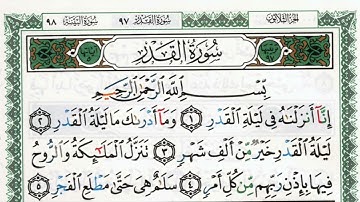 الجزء الثلاثون سورة القدر ٩٧ سورة البينة ٩٨
سُورَةُ الْقَدْرِ
بِسْمِ اللَّهِ الرَّحْمَٰنِ الرَّحِيمِ
إِنَّا أَنزَلْنَٰهُ فِي لَيْلَةِ الْقَدْرِ ١ وَمَا أَدْرَىٰكَ مَا لَيْلَةُ الْقَدْرِ ٢
لَيْلَةُ الْقَدْرِ خَيْرٌ مِّنْ أَلْفِ شَهْرٍ ٣ تَنَزَّلُ الْمَلَٰٓئِكَةُ وَالرُّوحُ
فِيهَا بِإِذْنِ رَبِّهِم مِّن كُلِّ أَمْرٍ ٤ سَلَٰمٌ هِيَ حَتَّىٰ مَطْلَعِ الْفَجْرِ ٥